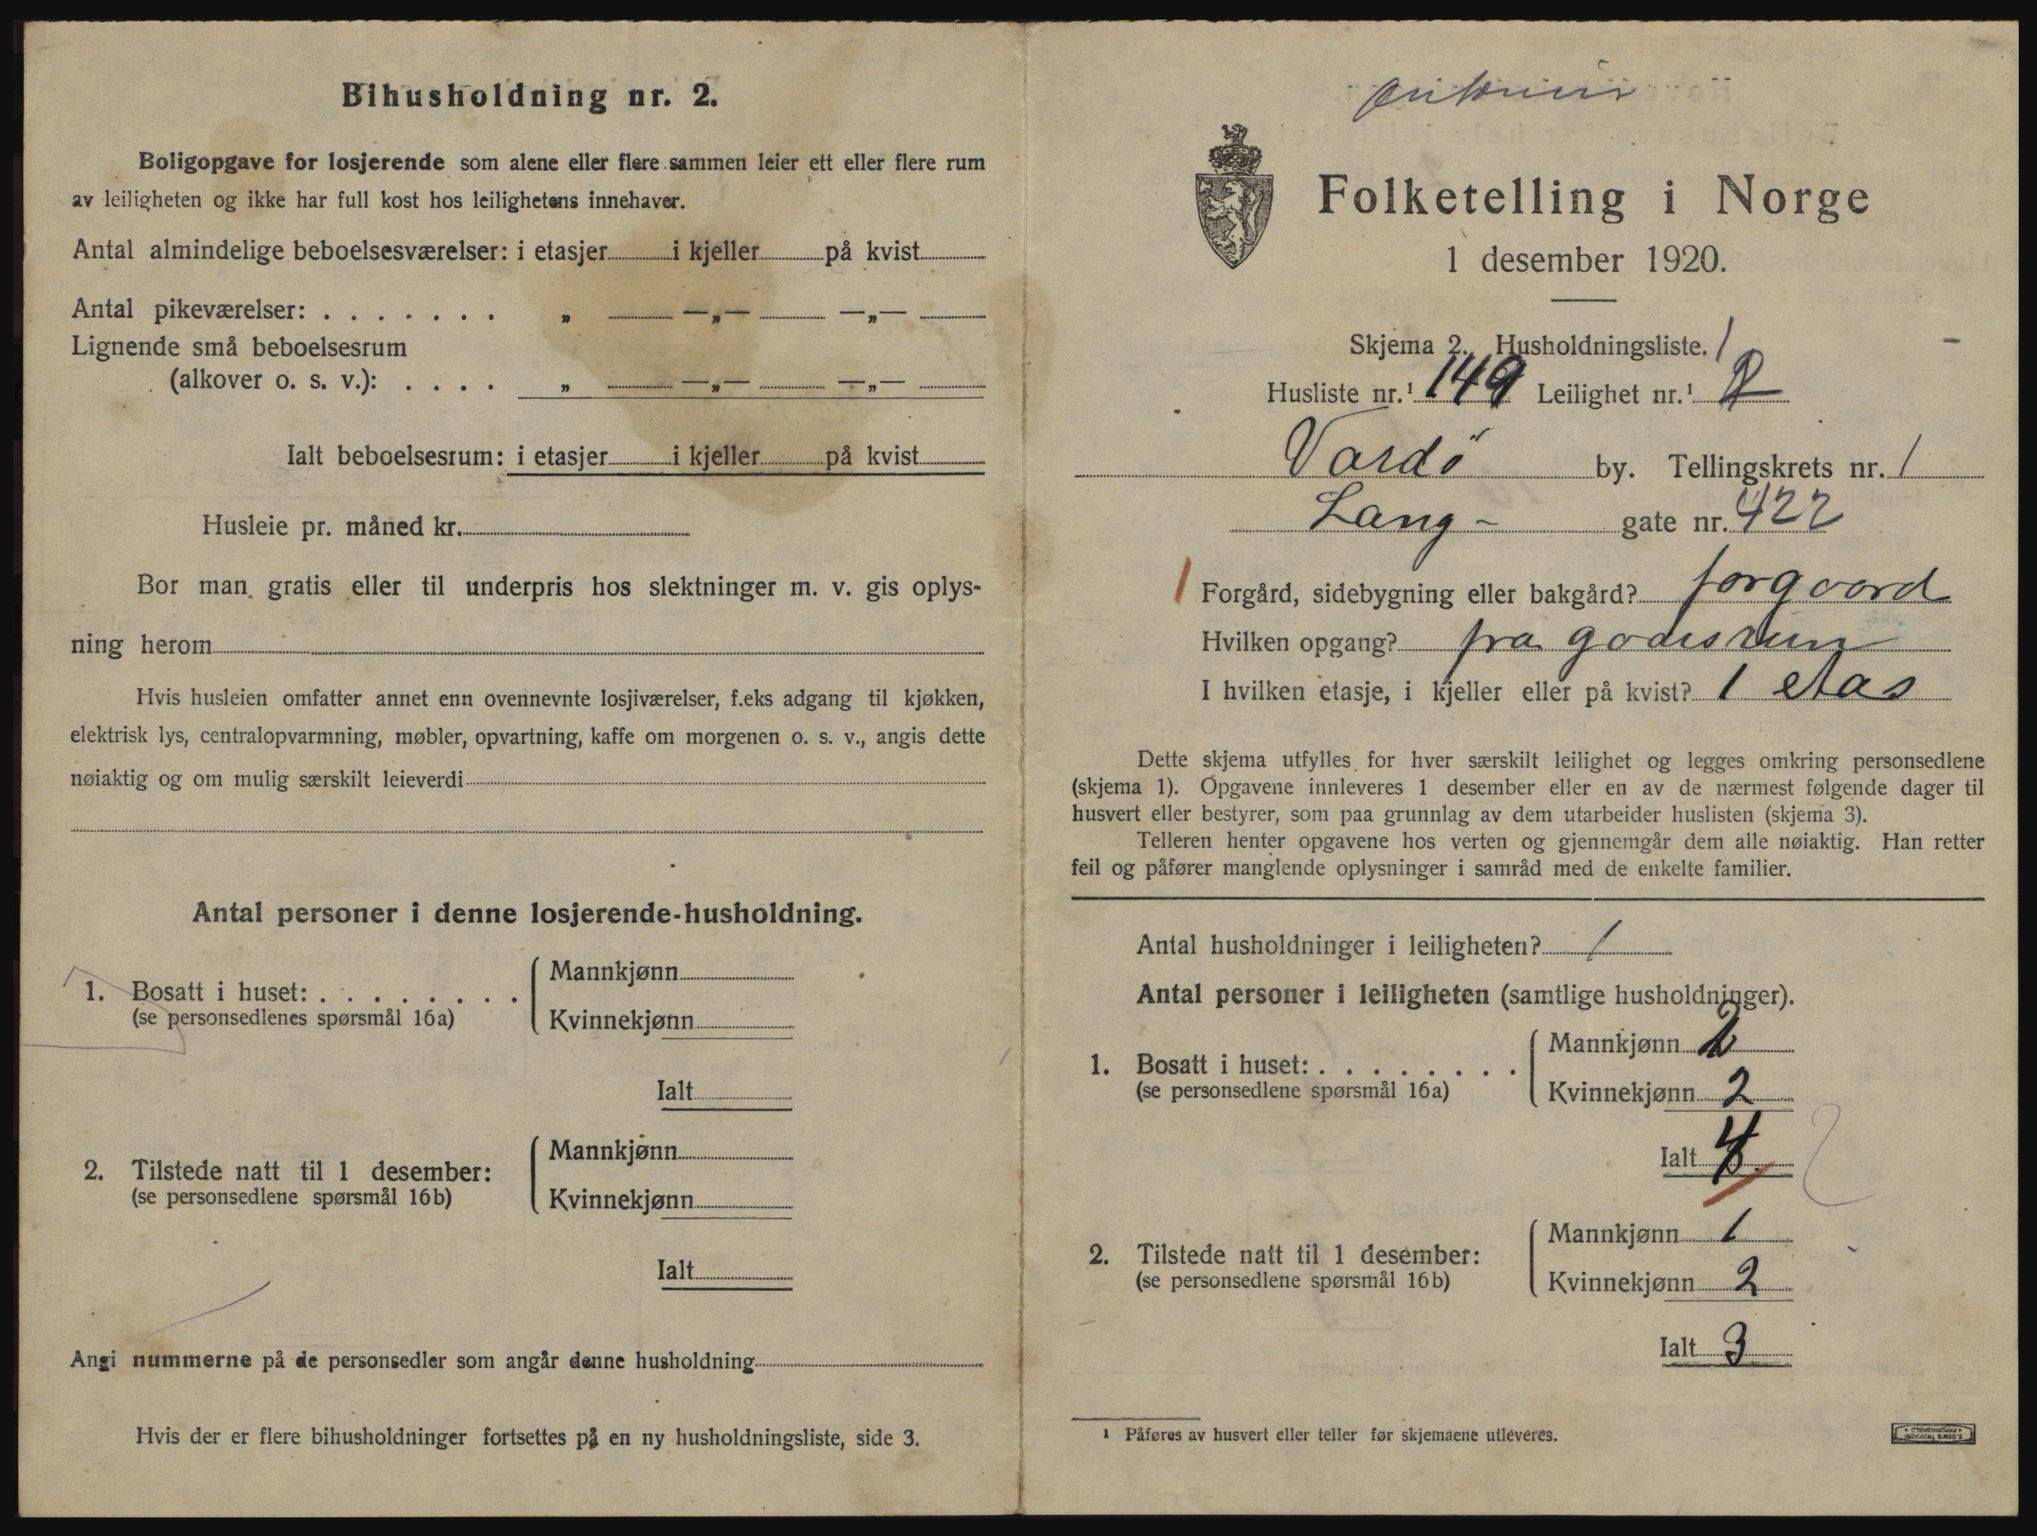 Bihusholdning nr. 2.
Boligopgave for losjerende som alene eller flere sammen leier ett eller flere rum
av leiligheten og ikke har full kost hos leilighetens innehaver.
Antal almindelige beboelsesværelser: i etasjer i kjeller på kvist
Antal pikeværelser: . . . . . . . „ —„— —„—
Lignende små beboelsesrum
(alkover o. s. v.): . . . . „ —„— —„—
Ialt beboelsesrum: i etasjer i kjeller på kvist
Husleie pr. måned kr.
Bor man gratis eller til underpris hos slektninger m. v. gis oplys-
ning herom
Hvis husleien omfatter annet enn ovennevnte losjiværelser, f.eks adgang til kjøkken,
elektrisk lys, centralopvarmning, møbler, opvartning, kaffe om morgenen o. s. v., angis dette
nøiaktig og om mulig særskilt leieverdi
Antal personer i denne losjerende-husholdning.
1. Bosatt i huset: . . . . . . . .
(se personsedlenes spørsmål 16a)
Mannkjønn
Kvinnekjønn
Ialt
2. Tilstede natt til 1 desember:
(se personsedlene spørsmål 16b)
Mannkjønn
Kvinnekjønn
Ialt
Angi nummerne på de personsedler som angår denne husholdning
Hvis der er flere bihusholdninger fortsettes på en ny husholdningsliste, side 3.
Folketelling i Norge
1 desember 1920.
Skjema 2. Husholdningsliste. 1
Husliste nr.¹ 149 Leilighet nr.¹
Vardö by. Tellingskrets nr. 1
Lang- gate nr. 422
1 Forgård, sidebygning eller bakgård? forgaard
Hvilken opgang? fra gaardsrum
I hvilken etasje, i kjeller eller på kvist? 1 etas
Dette skjema utfylles for hver særskilt leilighet og legges omkring personsedlene
(skjema 1). Opgavene innleveres 1 desember eller en av de nærmest følgende dager til
husvert eller bestyrer, som paa grunnlag av dem utarbeider huslisten (skjema 3).
Telleren henter opgavene hos verten og gjennemgår dem alle nøiaktig. Han retter
feil og påfører manglende oplysninger i samråd med de enkelte familier.
Antal husholdninger i leiligheten? 1
Antal personer i leiligheten (samtlige husholdninger).
1. Bosatt i huset: . . . . . . . .
(se personsedlene spørsmål 16a)
Mannkjønn 2
Kvinnekjønn 2
Ialt 4
2. Tilstede natt til 1 desember:
(se personsedlene spørsmål 16b)
Mannkjønn 1
Kvinnekjønn 2
Ialt 3
¹ Påføres av husvert eller teller før skjemaene utleveres.